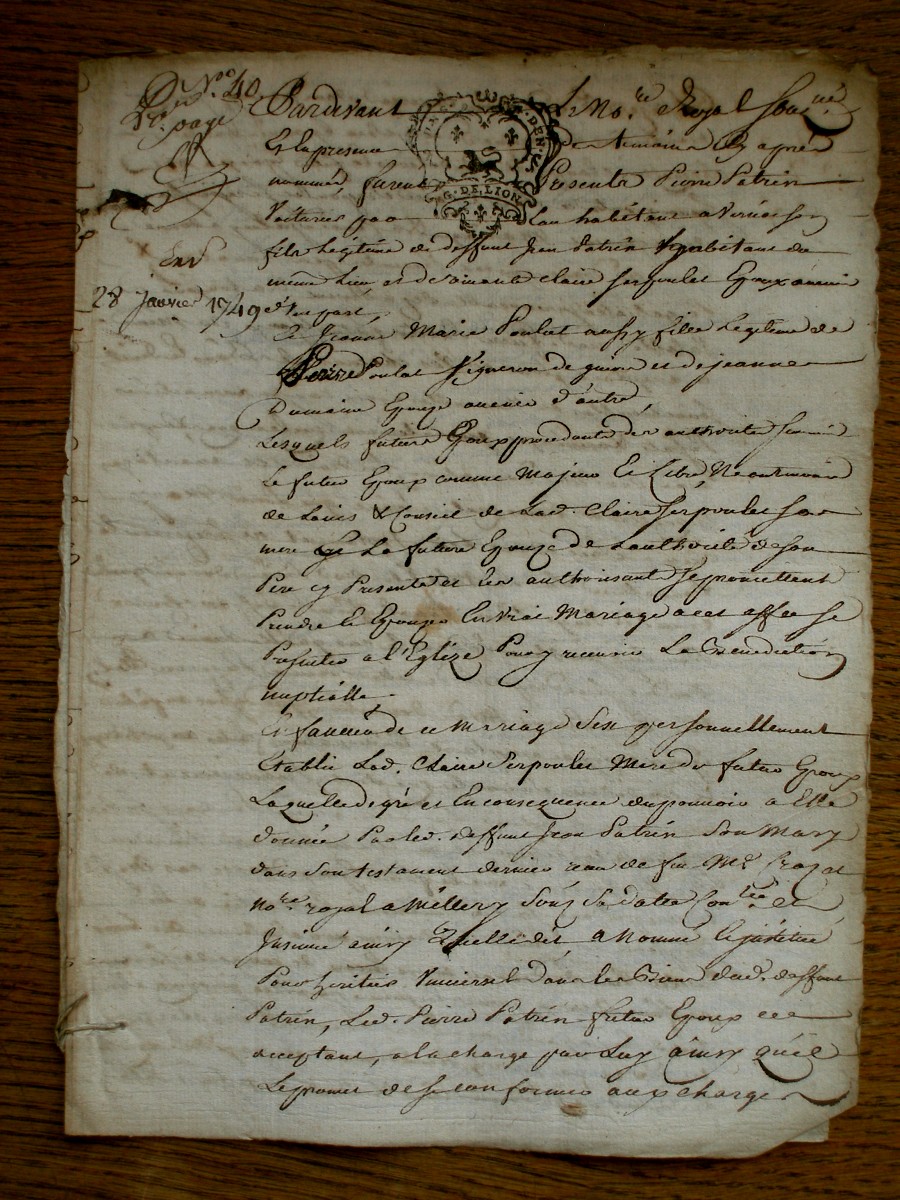 N.º 40
page
28 Janvier 1749
Pardevant Le No.re Royal Sousné
Et la presence De temoins Cy apres
nommés, furent Presents Pierre Patrin
G. DE LION
Voiturier par Eau habitant a Vernaison
fils Legitime de deffunt Jean Patrin habitant du
meme Lieu, et de vivante Claire Serpoulet Epoux avenir
d'une part,
Et Jeanne Marie Poulat aussy fille Legitime de
Pierre Poulat Vigneron de et de jeanne
Dumaine Epouze avenir d'autre,
Lesquels futurs Epoux procedants des authorités Scavoir
Le futur Epoux comme Majeur Et Libre, Neantmoins
de L'avis & Conseil de Lad. Claire Serpoulet Sa
mere Et La future Epouze de L'authorité de Son
Pere cy Present et Les authorisant Se promettent
Prendre et Epouzer En vrai Mariage a cet effet se
Presenter a l'Eglize Pour y recevoir La Benediction
nuptialle.
En faveur de ce Mariage S'est personnellement
Etablie Lad. Claire Serpoulet Mere du futur Epoux
Laquelle de gré et En consequence du pouvoir a Elle
donnée Par led. deffunt Jean Patrin Son Mary
dans Son testament dernier receu de feu Me. Crozat
No.re royal a Millery Sous Sa datte Con.lée et
Insinué ainsy qu'elle dit a Nommé Et institué
Pour heritier Universel Dans les Biens dud. deffunt
Patrin, Led. Pierre Patrin futur Epoux cy
acceptant, a la charge par Luy ainsy qu'il
Le promet de Se conformer aux charges